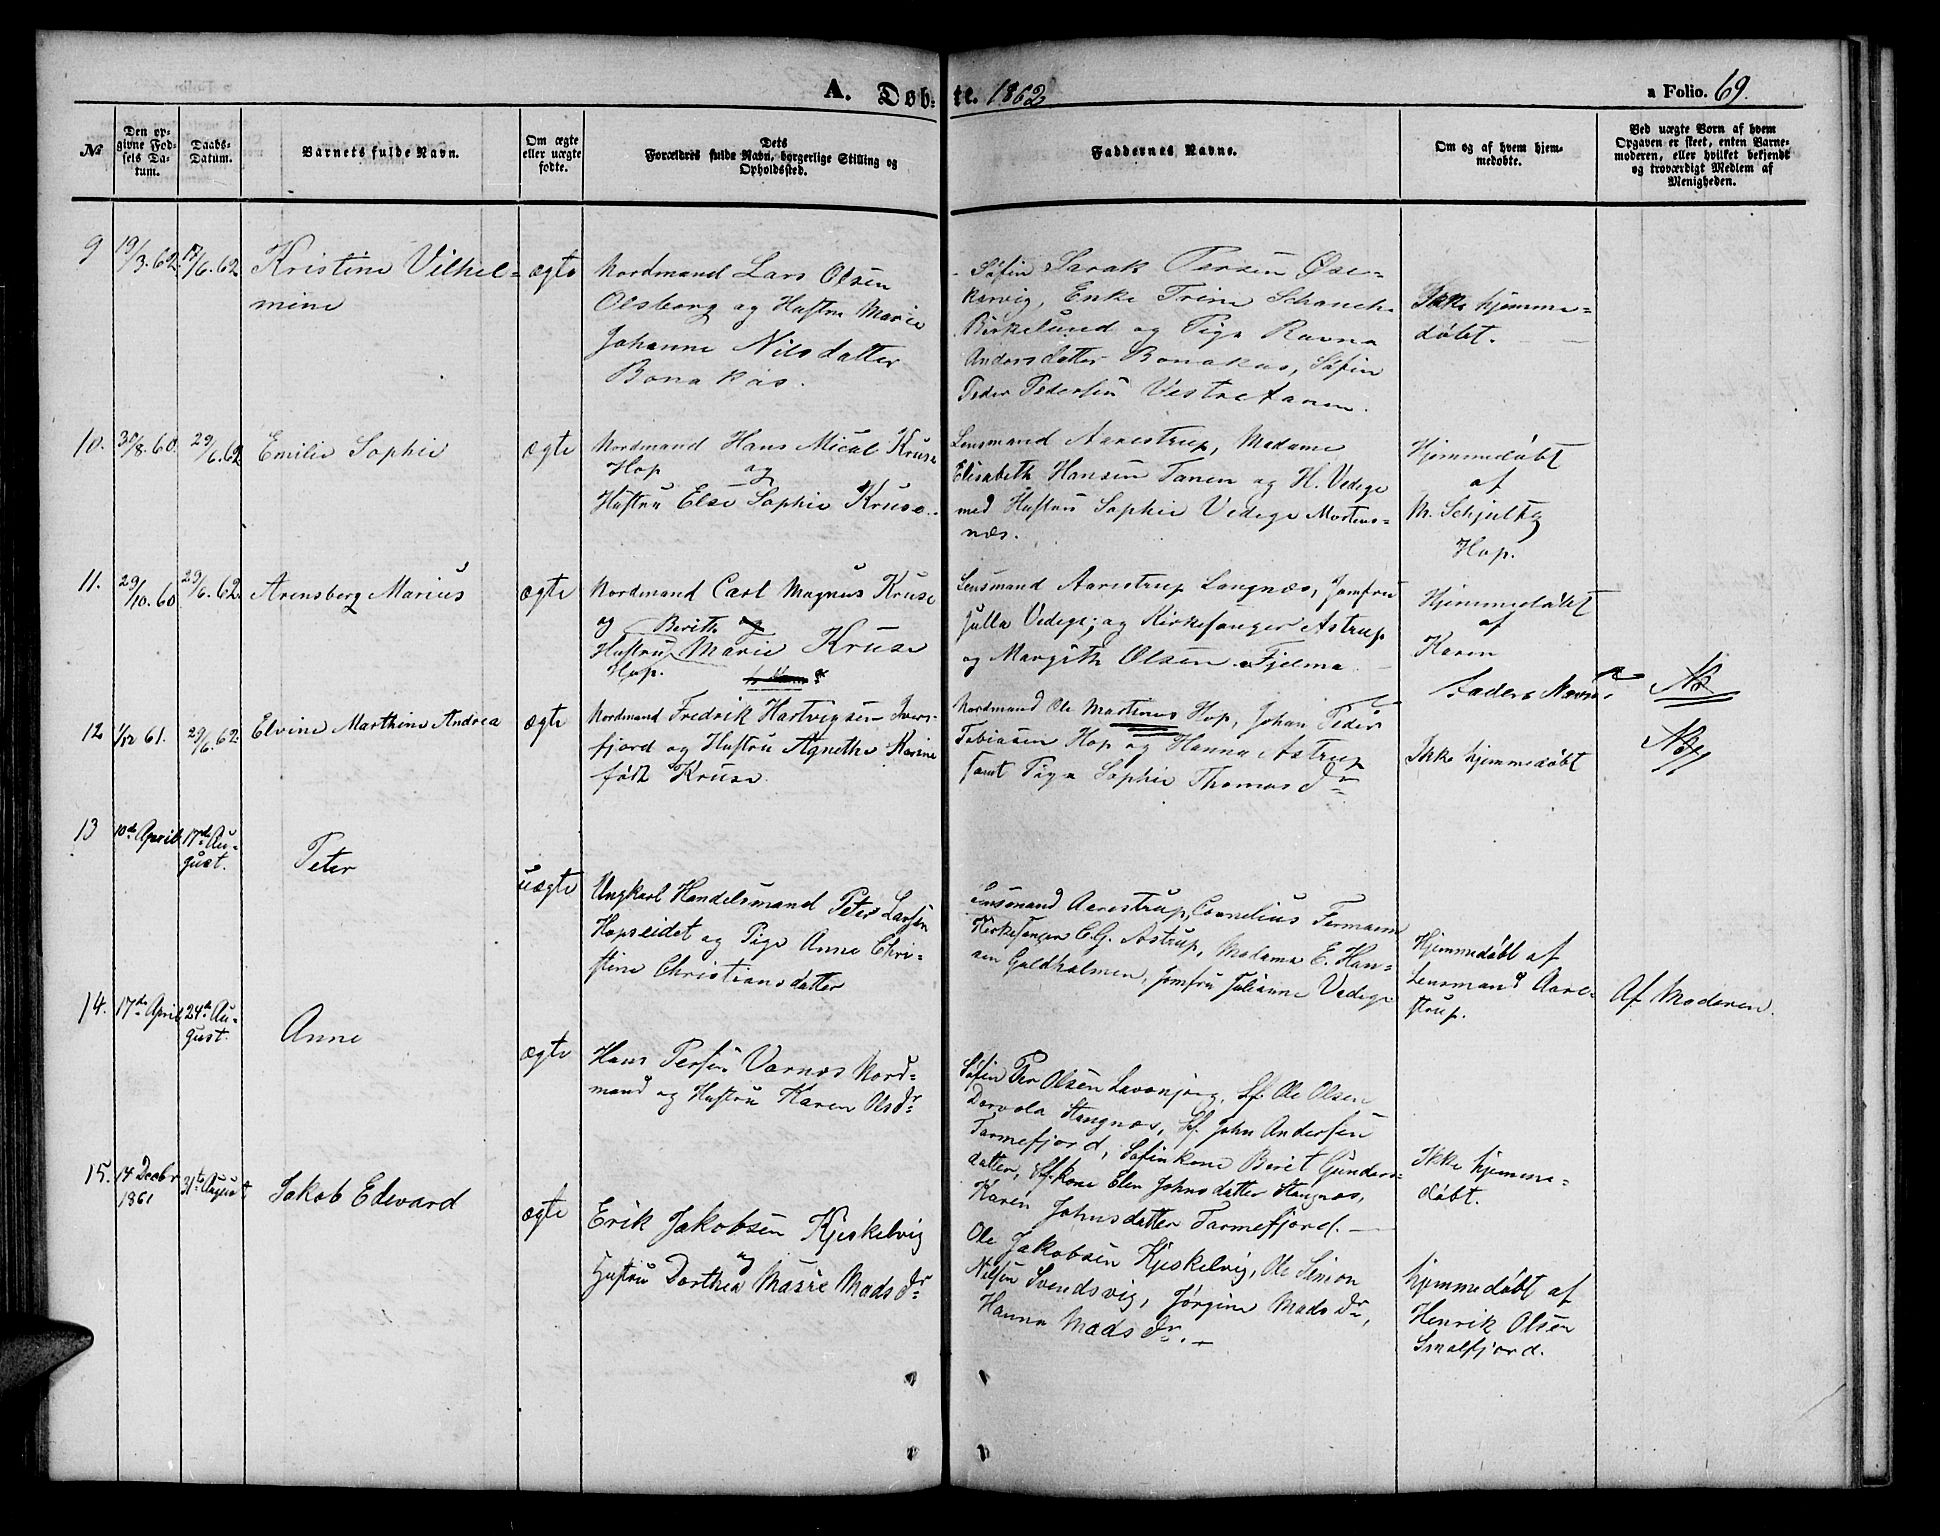 A. Døb- te. 1862
a Folio. 69.
No
Den opgivne Fødsels Datum.
Daabs-Datum.
Barnets fulde Navn.
Om ægte eller uægte fødte.
Dets Forældres fulde Navn, borgerlige Stilling og Opholdssted.
Faddernes Navne.
Om og af hvem hjemmedøbte.
Ved uægte Børn af hvem Opgaven er skeet, enten Barnemoderen, eller hvilket bekjendt og troværdigt Medlem af Menigheden.
9
19/3. 62.
17/6. 62
Kristine Vilhel-
mine
ægte
Nordmand Lars Olsen
Olsborg og Hustru Marie
Johanne Nilsdatter
Bonakas.
Søfin Sarak Persen
Enke Trine Schanch
Birkelund og Pige Ravna
Andersdatter Bonakas, Søfin
Peder Pedersen Vestre Tanen.
Ikke hjemme-
døbt.
10.
30/8. 60.
29/6. 62
Emilie Sophie
ægte
Nordmand Hans Mical Kruse
Hop og
Hustru Else Sophie Kruse.
Lensmand Aarestrup, Madame
Elisabeth Hansen Tanen og H. Vedege
med Hustru Sophie Vedege Mortens-
næs.
Hjemmedøbt
af
M. Schjultz
Hop.
11.
29/10. 60
29/6. 62.
Arensberg Marius
ægte
Nordmand Carl Magnus Kruse
og Berith
Hustru Marie Kruse
Hop.
Lensmand Aarestrup Langnæs, Jomfru
Julla Vedege; og Kirkesanger Astrup
og Margith Olsen Fjelma
Hjemmedøbt
af
Karen
Faders Navn
12
1/12 61.
29/6. 62.
Elvine Marthine Andrea
ægte
Nordmand Fredrik Hartvigsen Ivers-
fjord og Hustru Agnethe Marine
født Kruse.
Nordmand Ole Martinus Hop, Johan Peder
Tobiasen Hop og Hanna Astrup
samt Pige Sophie Thomasdr
Ikke hjemmedøbt
NB
NB
13
10de April
17de Au-
gust.
Peter
uægte
Ungkarl Handelsmand Peter Larsen
Hopseidet og Pige Anne Chri-
stine Christiansdatter
Lensmand Aarestrup, Cornelius Fermann
Kirkesanger C.G. Astrup, Madame E. Han-
sen Guldholmen, Jomfru Julianne Vedege
Hjemmedøbt af
Lensmand Aare-
strup.
Af Moderen.
14.
17de April
24de Au-
gust.
Anne
ægte
Hans Persen Varnæs Nord-
mand og Hustru Karen Olsdr
Søfin Per Olsen Lavonjarg, Sf. Ole Olsen
Dorvola Stangnæs, Sf. John Andersen
Tarmefjord, Søfinkone Beret Gunders-
datter, Sf.kone Elen Johnsdatter Stangnæs,
Karen Johnsdatter Tarmefjord.
Ikke hjemme-
døbt.
15.
14 Decbr
1861
31te August
Jakob Edevard
ægte
Erik Jakobsen Kjeskelvig
og
Hustru Dorthea Marie Madsdr
Ole Jakobsen Kjeskelvig, Ole Simon
Nilsen Svendsvig, Jørgine Madsdr,
Hanna Madsdr.
hjemmedøbt af
Henrik Olsen
Smalfjord.